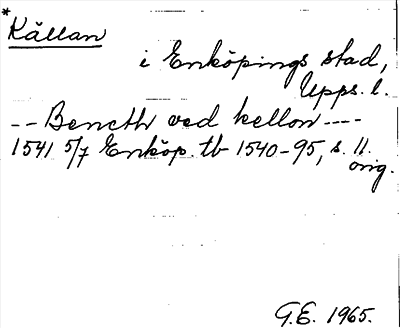 * Källan
i Enköpings stad,
Upps. l.
-- Bencth ved kellon ----
1541 5/7 Enköp. tb 1540-95, s. 11.
orig.
G.E. 1965.